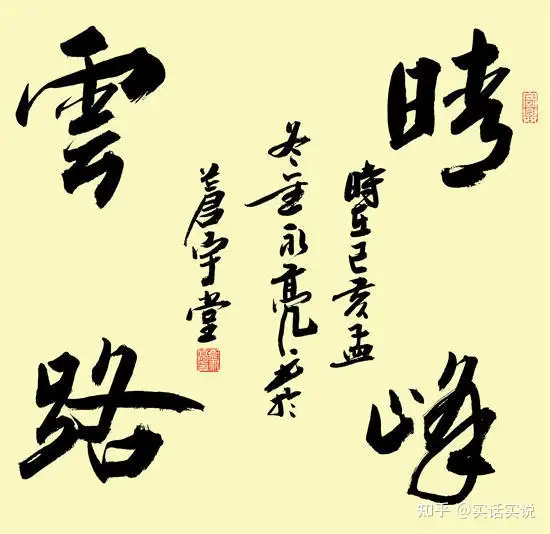 晴峰
時在己亥孟
冬金永亮书於
蒼宇堂
雲路
知乎 @实话实说